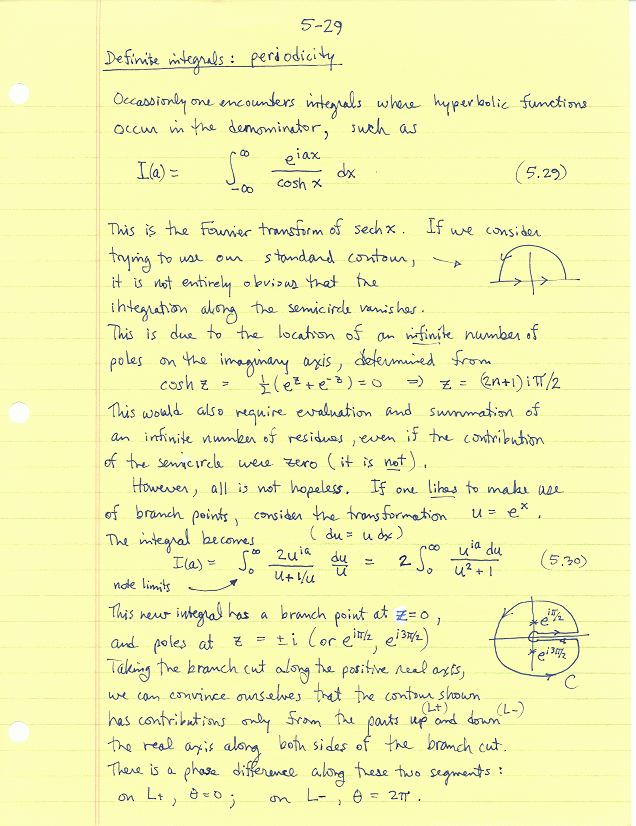 5-29
Definite integrals: periodicity
Occassionly one encounters integrals where hyperbolic functions
occur in the denominator, such as
I(a) = ∫_{-∞}^{∞} e^{iax} / cosh x dx (5.29)
This is the Fourier transform of sech x. If we consider
trying to use our standard contour, →
it is not entirely obvious that the
integration along the semicircle vanishes.
This is due to the location of an infinite number of
poles on the imaginary axis, determined from
cosh z = ½(e^z + e^{-z}) = 0 ⇒ z = (2n+1)iπ/2
This would also require evaluation and summation of
an infinite number of residues, even if the contribution
of the semicircle were zero (it is not).
However, all is not hopeless. If one likes to make use
of branch points, consider the transformation u = e^x.
The integral becomes (du = u dx)
I(a) = ∫_0^∞ 2u^{ia} / (u + 1/u) du/u = 2 ∫_0^∞ u^{ia} du / (u² + 1) (5.30)
note limits
This new integral has a branch point at z=0,
and poles at z = ±i (or e^{iπ/2}, e^{i3π/2})
e^{iπ/2}
e^{i3π/2}
C
Taking the branch cut along the positive real axis,
we can convince ourselves that the contour shown
has contributions only from the parts up (L+) and down (L-)
the real axis along both sides of the branch cut.
There is a phase difference along these two segments:
on L+, θ=0; on L-, θ = 2π.